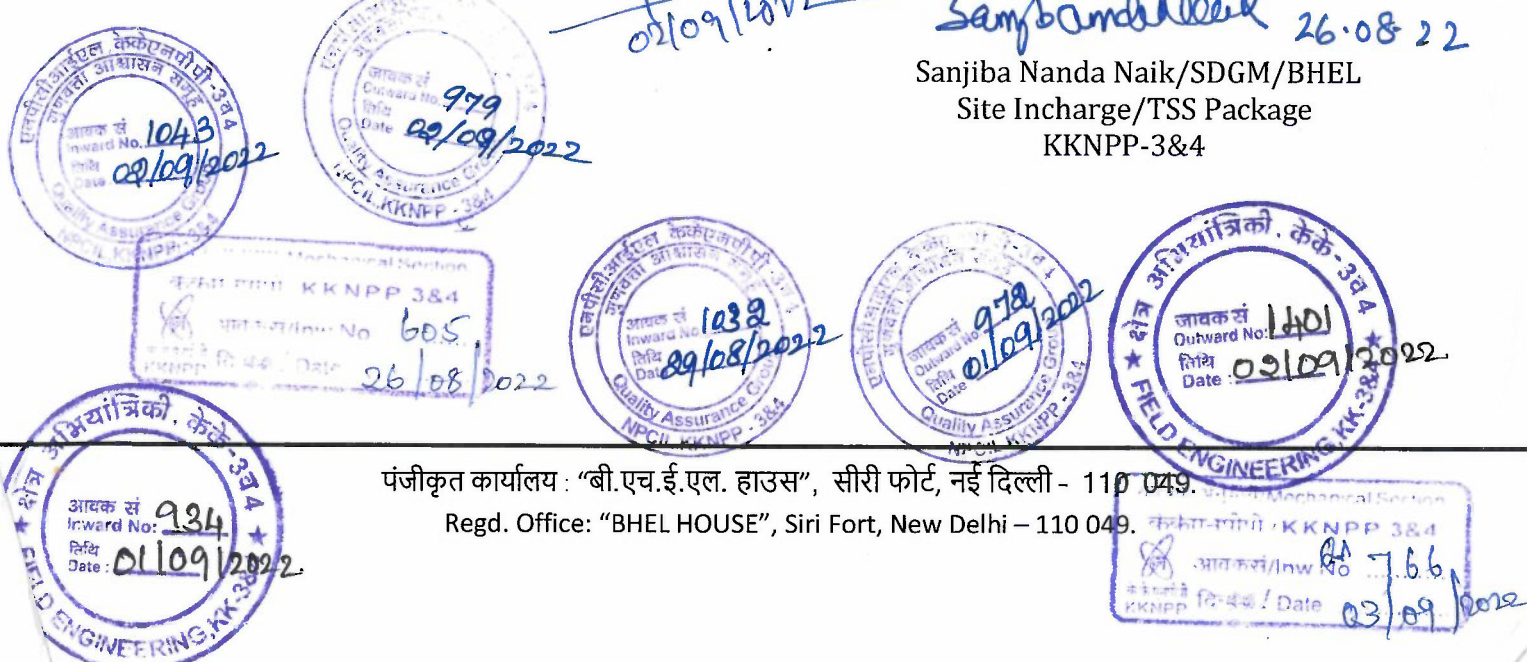 02/09/2022
26.08 22
Sanjiba Nanda Naik/SDGM/BHEL
Site Incharge/TSS Package
KKNPP-3&4
एनपीसीआईएल केकेएनपीपी-3व4
गुणवत्ता आश्वासन समूह
आवक सं
Inward No. 1043
तिथि
Date 02/09/2022
Quality Assurance Group
NPCIL, KKNPP - 3&4
जावक सं
Outward No. 979
तिथि
Date 02/09/2022
Quality Assurance Group
NPCIL, KKNPP - 3&4
Mechanical Section
KKNPP 3&4
Inw No 605
Date 26/08/2022
एनपीसीआईएल केकेएनपीपी-3व4
गुणवत्ता आश्वासन समूह
आवक सं
Inward No 1032
तिथि
Date 29/08/2022
Quality Assurance Group
NPCIL, KKNPP - 3&4
जावक सं
Outward No 978
तिथि
Date 01/09/2022
Quality Assurance Group
NPCIL, KKNPP - 3&4
क्षेत्र अभियांत्रिकी, केके-3व4
जावक सं
Outward No: 1401
तिथि
Date : 02/09/2022
FIELD ENGINEERING, KK-3&4
क्षेत्र अभियांत्रिकी, केके-3व4
आवक सं
Inward No: 934
तिथि
Date : 01/09/2022
FIELD ENGINEERING, KK-3&4
पंजीकृत कार्यालय : “बी.एच.ई.एल. हाउस”, सीरी फोर्ट, नई दिल्ली - 110 049.
Regd. Office: “BHEL HOUSE”, Siri Fort, New Delhi – 110 049.
Mechanical Section
KKNPP 3&4
आवक सं/Inw No 766
KKNPP Date 03/09/2022